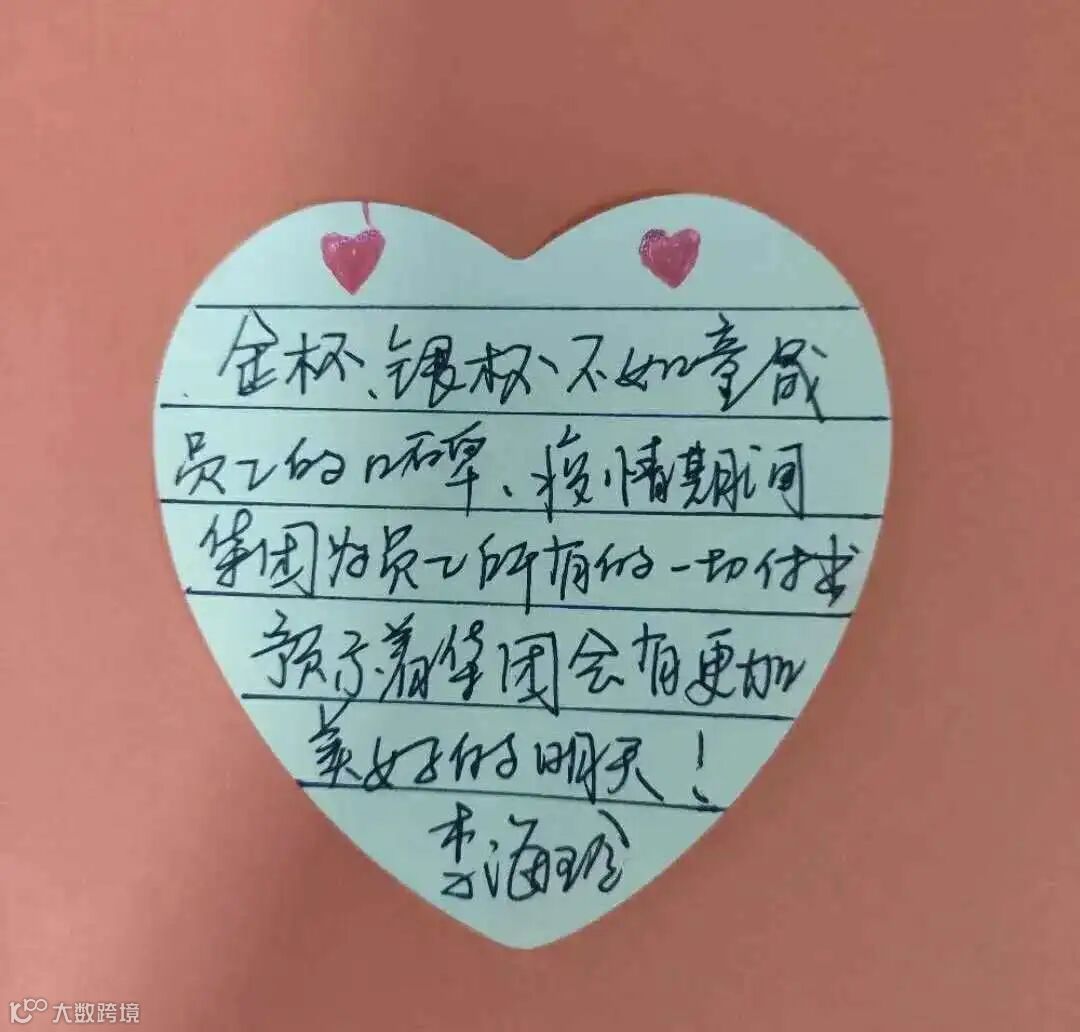 金杯、银杯、不如童晟
员工的口碑、疫情期间
集团为员工所有的一切付出
预示着集团会有更加
美好的明天！
李海玲
大数跨境